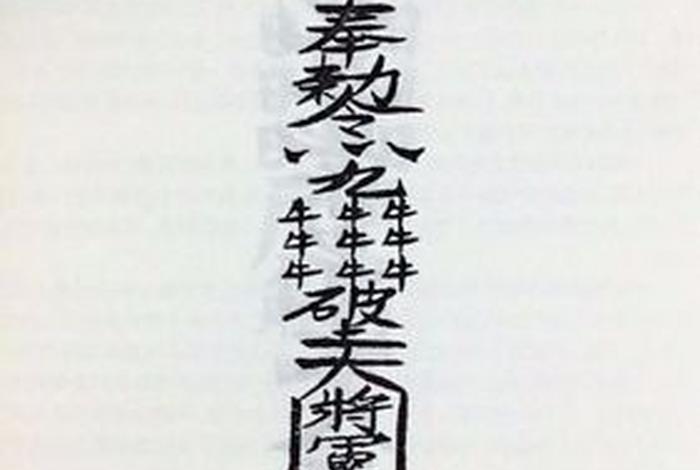 奉
勅
令
九
牛牛牛
牛牛牛
牛牛牛
破
將
軍